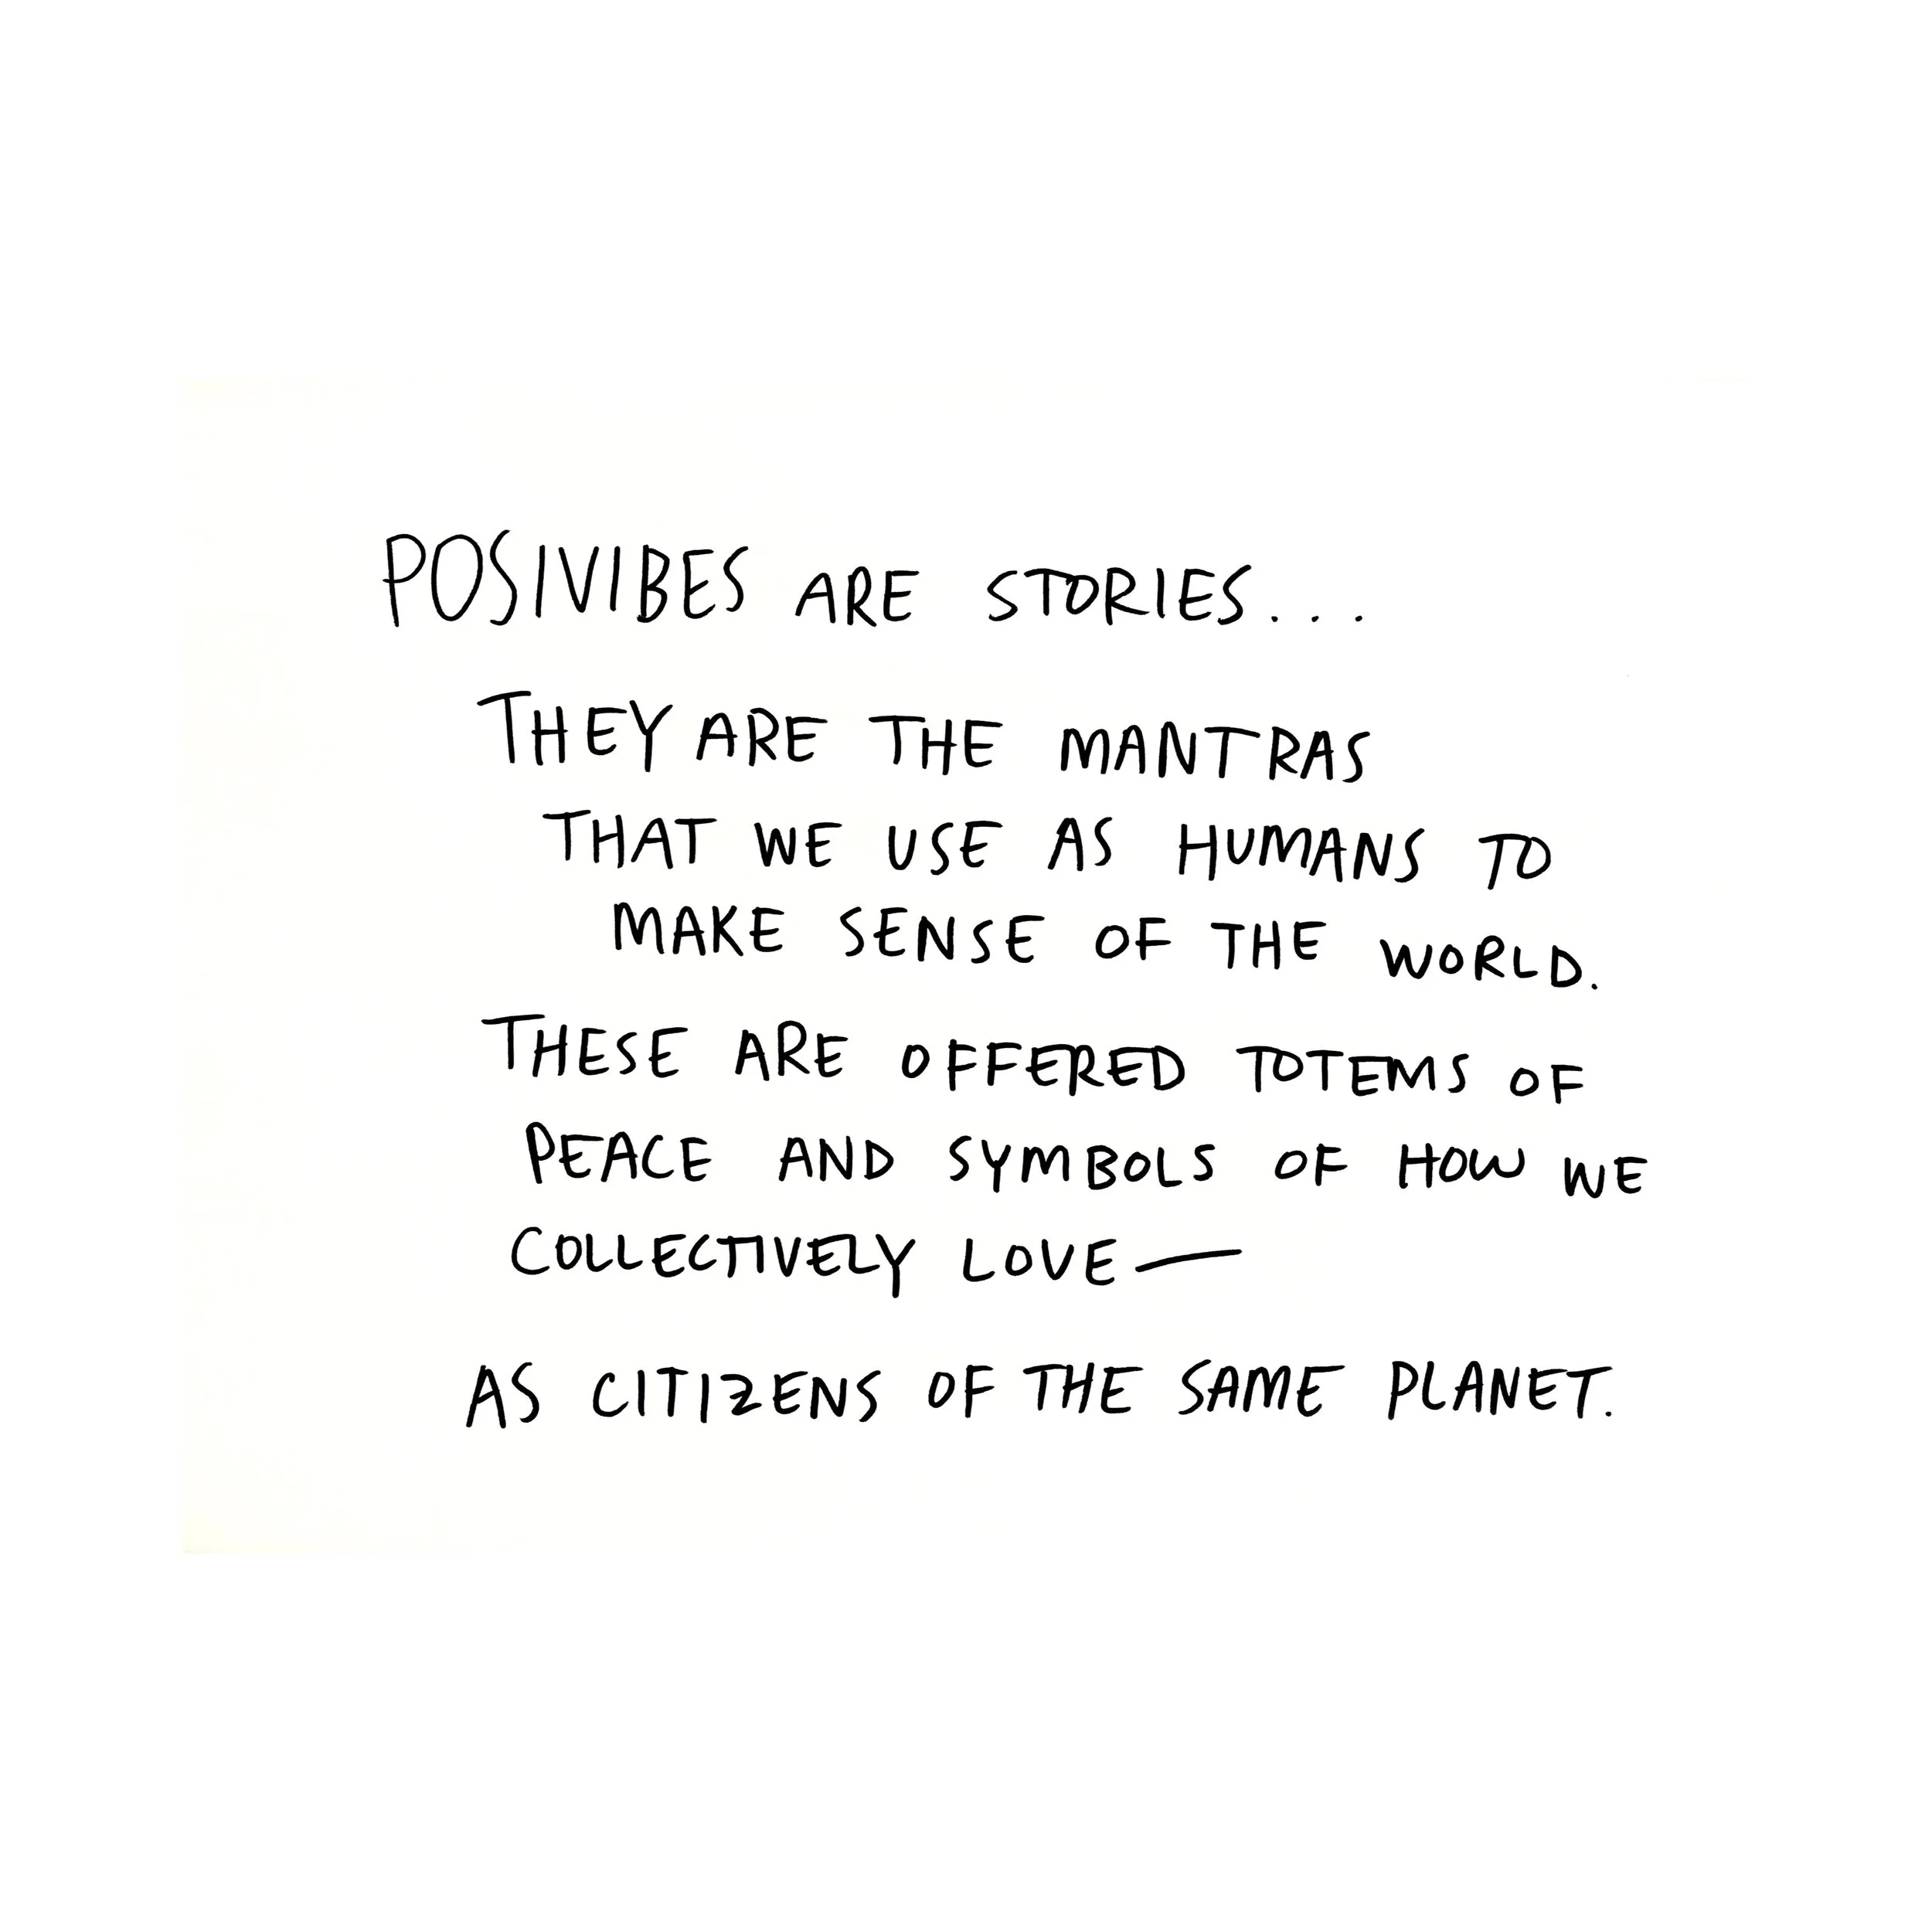 POSIVIBES ARE STORIES....
THEY ARE THE MANTRAS
THAT WE USE AS HUMANS TO
MAKE SENSE OF THE WORLD.
THESE ARE OFFERED TOTEMS OF
PEACE AND SYMBOLS OF HOW WE
COLLECTIVELY LOVE—
AS CITIZENS OF THE SAME PLANET.